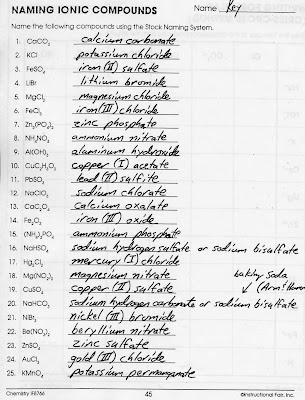 NAMING IONIC COMPOUNDS Name Key
Name the following compounds using the Stock Naming System.
1. CaCO₃ calcium carbonate
2. KCl potassium chloride
3. FeSO₄ iron (II) sulfate
4. LiBr lithium bromide
5. MgCl₂ magnesium chloride
6. FeCl₃ iron (III) chloride
7. Zn₃(PO₄)₂ zinc phosphate
8. NH₄NO₃ ammonium nitrate
9. Al(OH)₃ aluminum hydroxide
10. CuC₂H₃O₂ copper (I) acetate
11. PbSO₃ lead (II) sulfite
12. NaClO₃ sodium chlorate
13. CaC₂O₄ calcium oxalate
14. Fe₂O₃ iron (III) oxide
15. (NH₄)₃PO₄ ammonium phosphate
16. NaHSO₄ sodium hydrogen sulfate or sodium bisulfate
17. Hg₂Cl₂ mercury (I) chloride
18. Mg(NO₂)₂ magnesium nitrate baking soda
19. CuSO₄ copper (II) sulfate (Arm & Hammer
20. NaHCO₃ sodium hydrogen carbonate or sodium bisulfate
21. NiBr₃ nickel (III) bromide
22. Be(NO₃)₂ beryllium nitrate
23. ZnSO₄ zinc sulfate
24. AuCl₃ gold (III) chloride
25. KMnO₄ potassium permanganate
Chemistry IF8766 45 ©Instructional Fair, Inc.